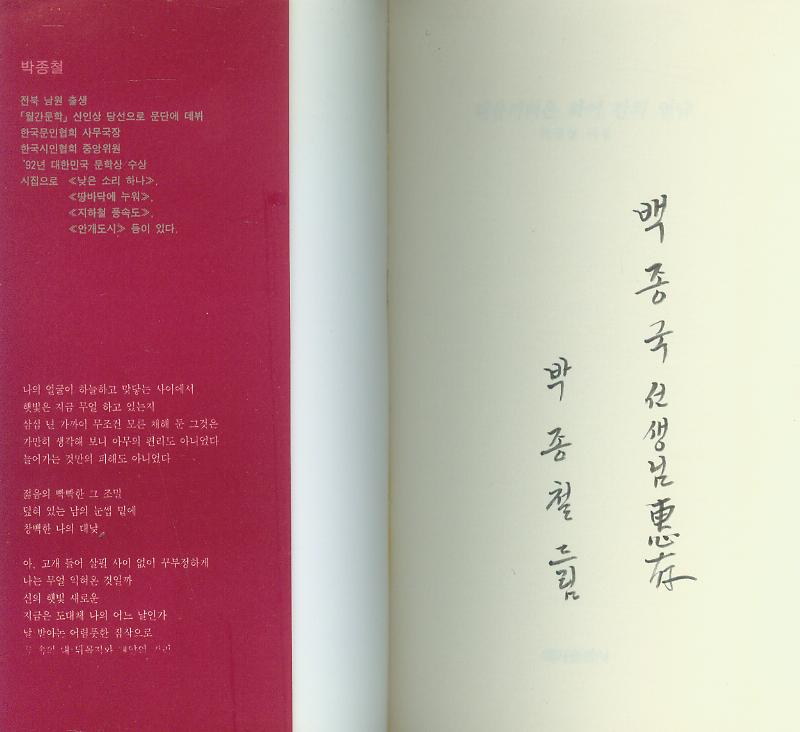 박종철
전북 남원 출생
「월간문학」 신인상 당선으로 문단에 데뷔
한국문인협회 사무국장
한국시인협회 중앙위원
'92년 대한민국 문학상 수상
시집으로 ≪낮은 소리 하나≫,
≪땅바닥에 누워≫,
≪지하철 풍속도≫,
≪안개도시≫ 등이 있다.
나의 얼굴이 하늘하고 맞닿는 사이에서
햇빛은 지금 무얼 하고 있는지
삼십 년 가까이 무조건 모른 채해 둔 그것은
가만히 생각해 보니 아무의 편리도 아니었다
늙어가는 것만의 피해도 아니었다
젊음의 빽빽한 그 조밀
덮혀 있는 남의 눈썹 밑에
창백한 나의 대낮
아, 고개 들어 살필 사이 없이 꾸부정하게
나는 무얼 익혀온 것일까
신의 햇빛 새로운
지금은 도대체 나의 어느 날인가
날 받아논 어렴풋한 짐작으로
백종국 선생님 惠存
박종철 드림